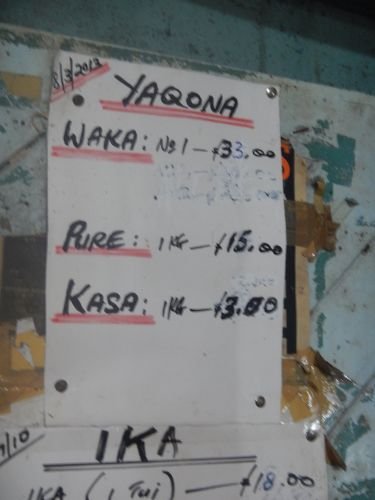 8/3/2013
YAQONA
WAKA: No 1 — $33.00
PURE: 1 KG — $15.00
KASA: 1KG — $3.00
/10
IKA
IKA (1 Tui) — $18.00